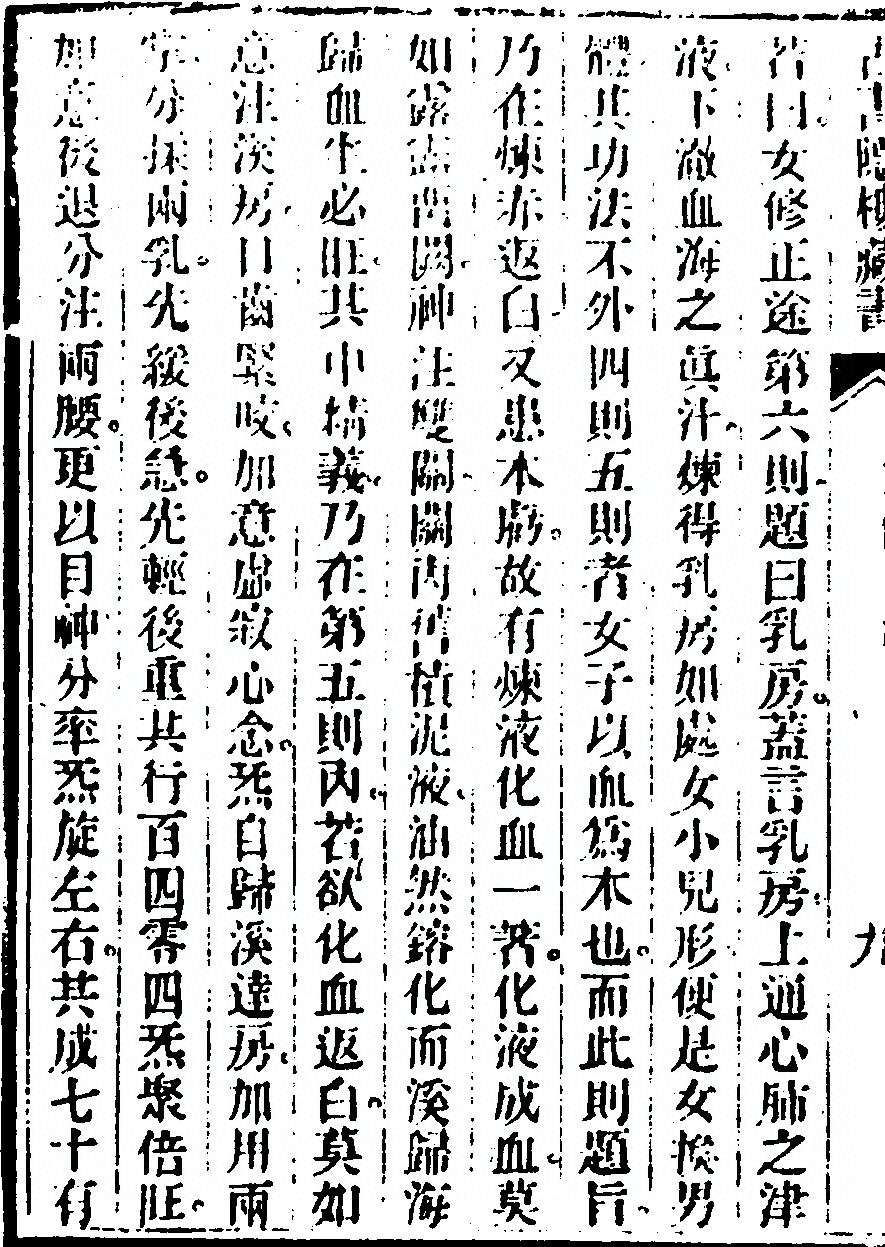 古書隱樓藏書
若曰。女修正途第六則。題曰乳房。蓋言乳房。上通心肺之津
液。下澈血海之眞汁。煉得乳房如處女小兒形。便是女換男
體。其功法不外四則五則者。女子以血爲本也。而此則題旨。
乃在煉赤返白。又患本虧。故有煉液化血一著。化液成血。莫
如露雲兩闕。神注雙關。關內舊積泥液。油然鎔化而溪歸海
歸。血生必旺。其中精義。乃在第五則內。若欲化血返白。莫如
意注溪房。口齒緊咬。加意虛寂心念。炁自歸溪達房。加用兩
掌分採兩乳。先緩後急。先輕後重。共行百四零四。炁聚倍旺。
如意後退。分注兩腰。更以目神分率炁旋左右。共成七十有